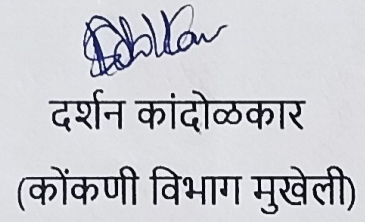 दर्शन कांदोळकार
(कोंकणी विभाग मुखेली)